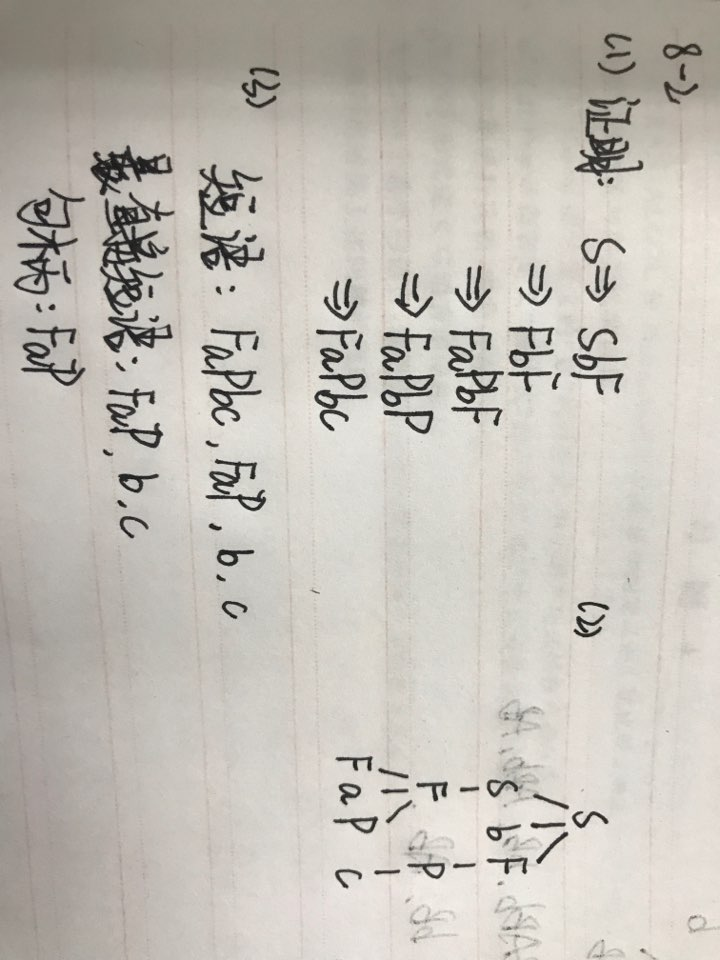 8-2
(1) 证明: S⇒SbF
⇒FbF
⇒FaPbF
⇒FaPbP
⇒FaPbc
(2)
S
S b F
F P
F a P c
(3) 短语: FaPbc, FaP, b, c
直接短语: FaP, b, c
句柄: FaP